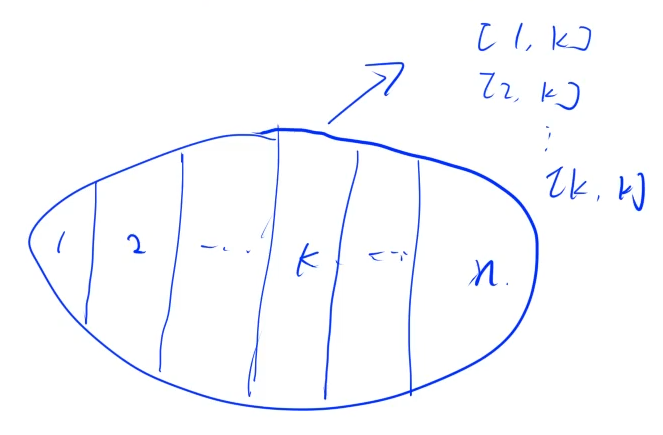 [1, k]
[2, k]
⋮
[k, k]
1 2 ---- k ---- n.